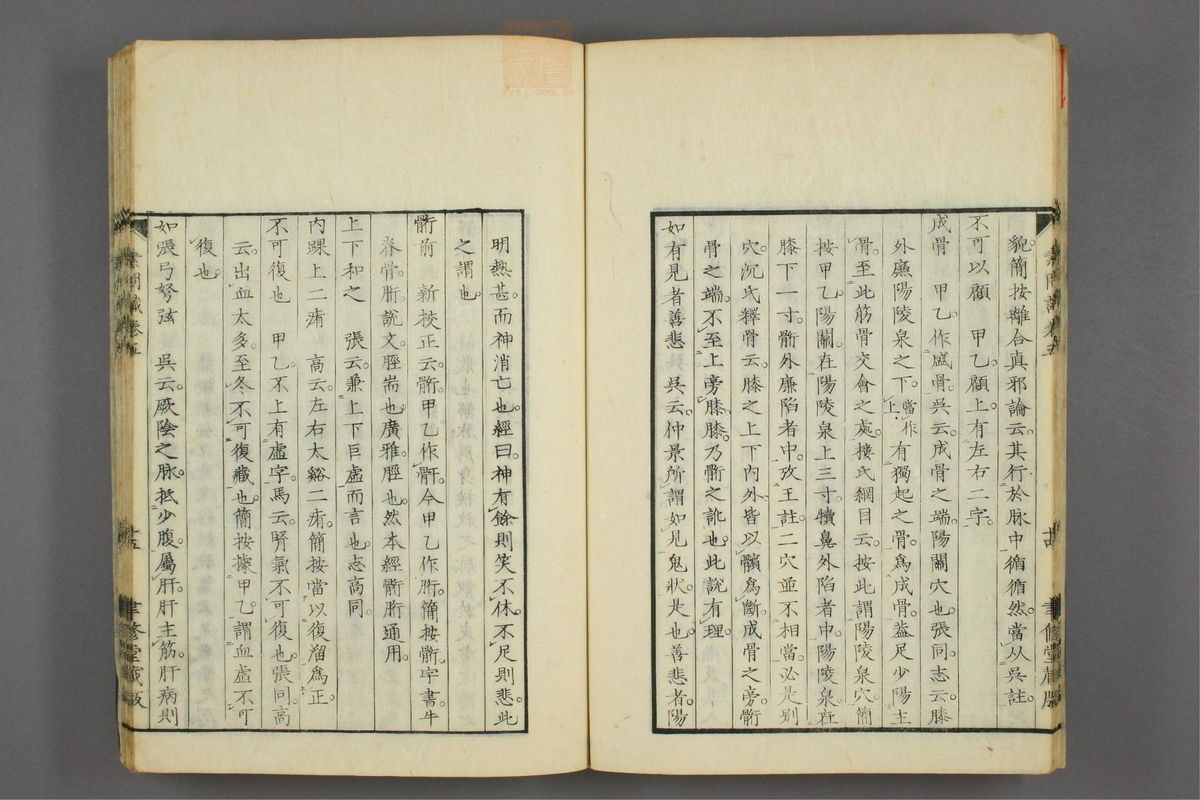 貌簡按離合真邪論云其行於脉中循循然當从吳註
不可以顧　甲乙顧上有左右二字
成骨　甲乙作盛骨吳云成骨之端陽關穴也張同志云膝
外廉陽陵泉之下當作上有獨起之骨爲成骨葢足少陽主
骨至此筋骨交會之處樓氏綱目云按此謂陽陵泉穴簡
按甲乙陽關在陽陵泉上三寸犢鼻外陷者中陽陵泉在
膝下一寸䯒外廉陷者中攷王註二穴並不相當必是別
穴沉氏釋骨云膝之上下內外皆以髕爲斷成骨之旁䯒
骨之端不至上旁膝膝乃䯒之訛也此說有理
如有見者善悲　吳云仲景所謂如見鬼狀是也善悲者陽
明熱甚而神消亡也經曰神有餘則笑不休不足則悲此
之謂也
䯒前　新校正云䯒甲乙作骭今甲乙作胻簡按䯒字書牛
脊骨胻說文脛耑也廣雅脛也然本經䯒胻通用
上下和之　張云兼上下巨虛而言也志高同
內踝上二痏　高云左右太谿二痏簡按當以復溜爲正
不可復也　甲乙不上有虛字馬云腎氣不可復也張同高
云出血太多至冬不可復藏也簡按據甲乙謂血虛不可
復也
如張弓弩弦　吳云厥陰之脉抵少腹屬肝肝主筋肝病則
素問識卷五
聿修堂藏版
素問識卷五
聿修堂藏版